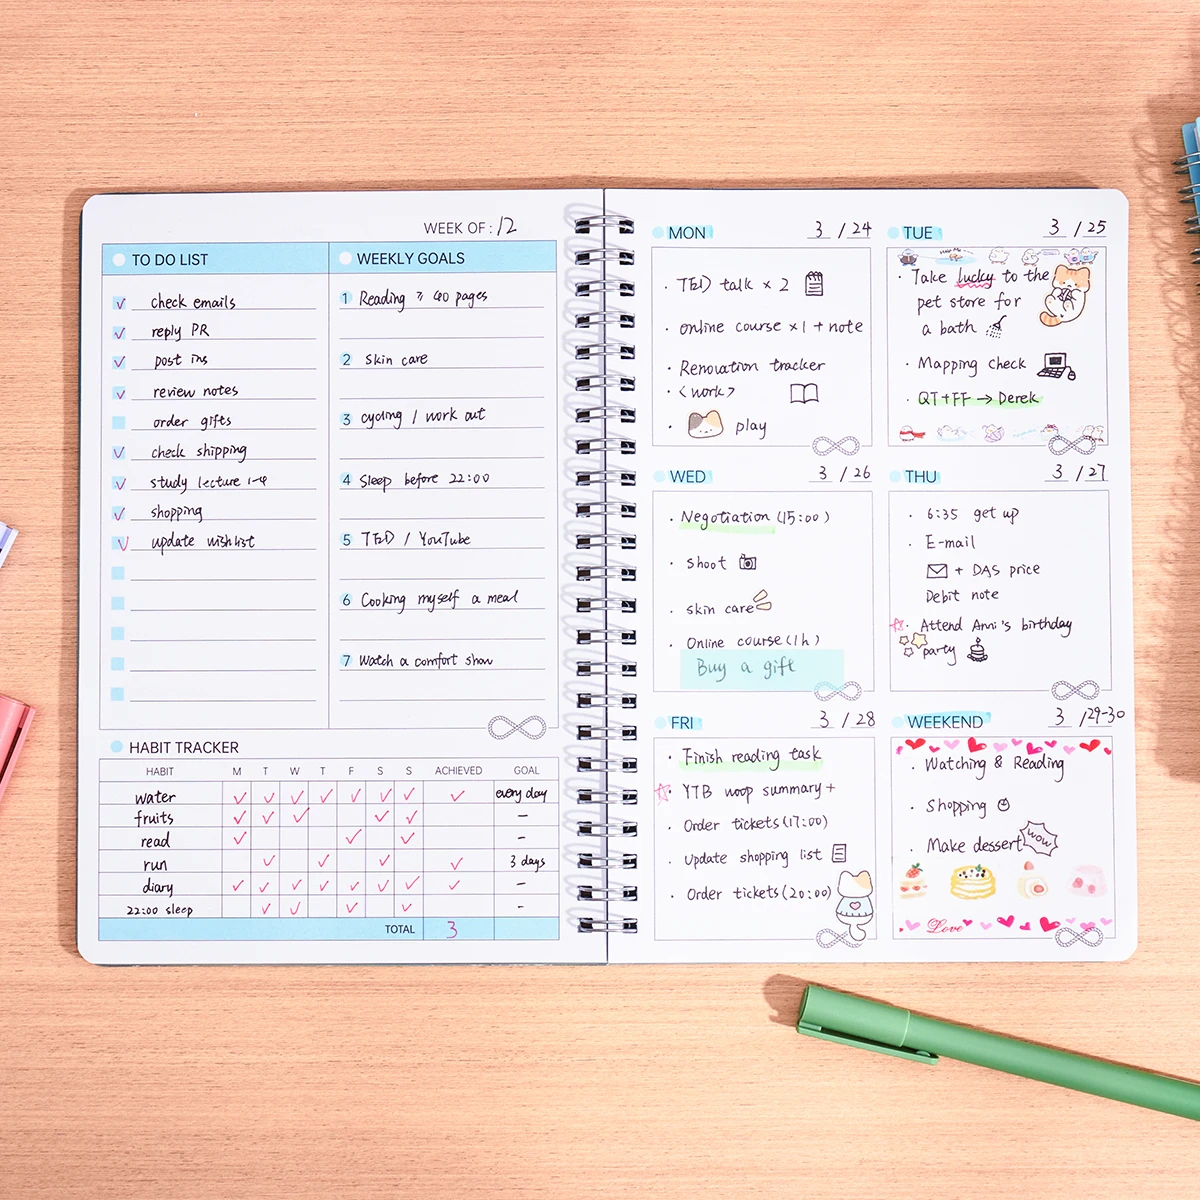 WEEK OF : 12
TO DO LIST
check emails
reply PR
post ins
review notes
order gifts
check shipping
study lecture 1-4
shopping
update wishlist
WEEKLY GOALS
1 Reading ≥ 400 pages
2 Skin care
3 cycling / work out
4 Sleep before 22:00
5 TED / YouTube
6 Cooking myself a meal
7 Watch a comfort show
HABIT TRACKER
HABIT M T W T F S S ACHIEVED GOAL
water ✓ ✓ ✓ ✓ ✓ ✓ ✓ ✓ every day
fruits ✓ ✓ ✓ ✓ ✓ -
read ✓ ✓ ✓ -
run ✓ ✓ ✓ ✓ 3 days
diary ✓ ✓ ✓ ✓ ✓ ✓ ✓ ✓ -
22:00 sleep ✓ ✓ ✓ ✓ -
TOTAL 3
MON 3 / 24
· TED talk × 2
· online course ×1 + note
· Renovation tracker
· <work>
· play
TUE 3 / 25
· Take lucky to the
pet store for
a bath
· Mapping check
· QT+FF → Derek
WED 3 / 26
· Negotiation (15:00)
· shoot
· skin care
· Online course (1h)
Buy a gift
THU 3 / 27
· 6:35 get up
· E-mail
+ DAS price
Debit note
· Attend Anni's birthday
party
FRI 3 / 28
· Finish reading task
· YTB woop summary +
· Order tickets (17:00)
· Update shopping list
· Order tickets (20:00)
WEEKEND 3 / 29-30
· Watching & Reading
· Shopping
· Make dessert
WOW
Love